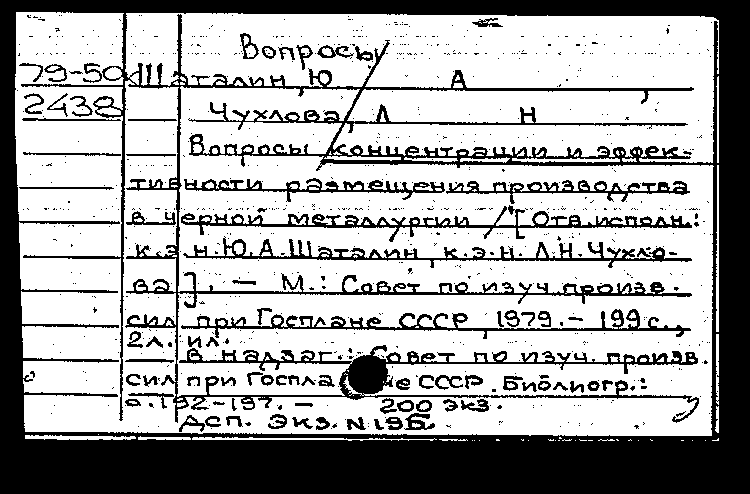 Вопросы
79-50 Шаталин, Ю А
2438 Чухлова, Л Н
Вопросы концентрации и эффек-
тивности размещения производства
в черной металлургии / [Отв. исполн.:
к.э.н. Ю.А. Шаталин, к.э.н. Л.Н. Чухло-
ва]. — М.: Совет по изуч. произв.
сил при Госплане СССР, 1979. - 199 с.,
2 л. ил.
В надзаг.: Совет по изуч. произв.
сил при Госплане СССР. Библиогр.:
с. 192-197. — 200 экз.
ДСП. Экз. N 196.